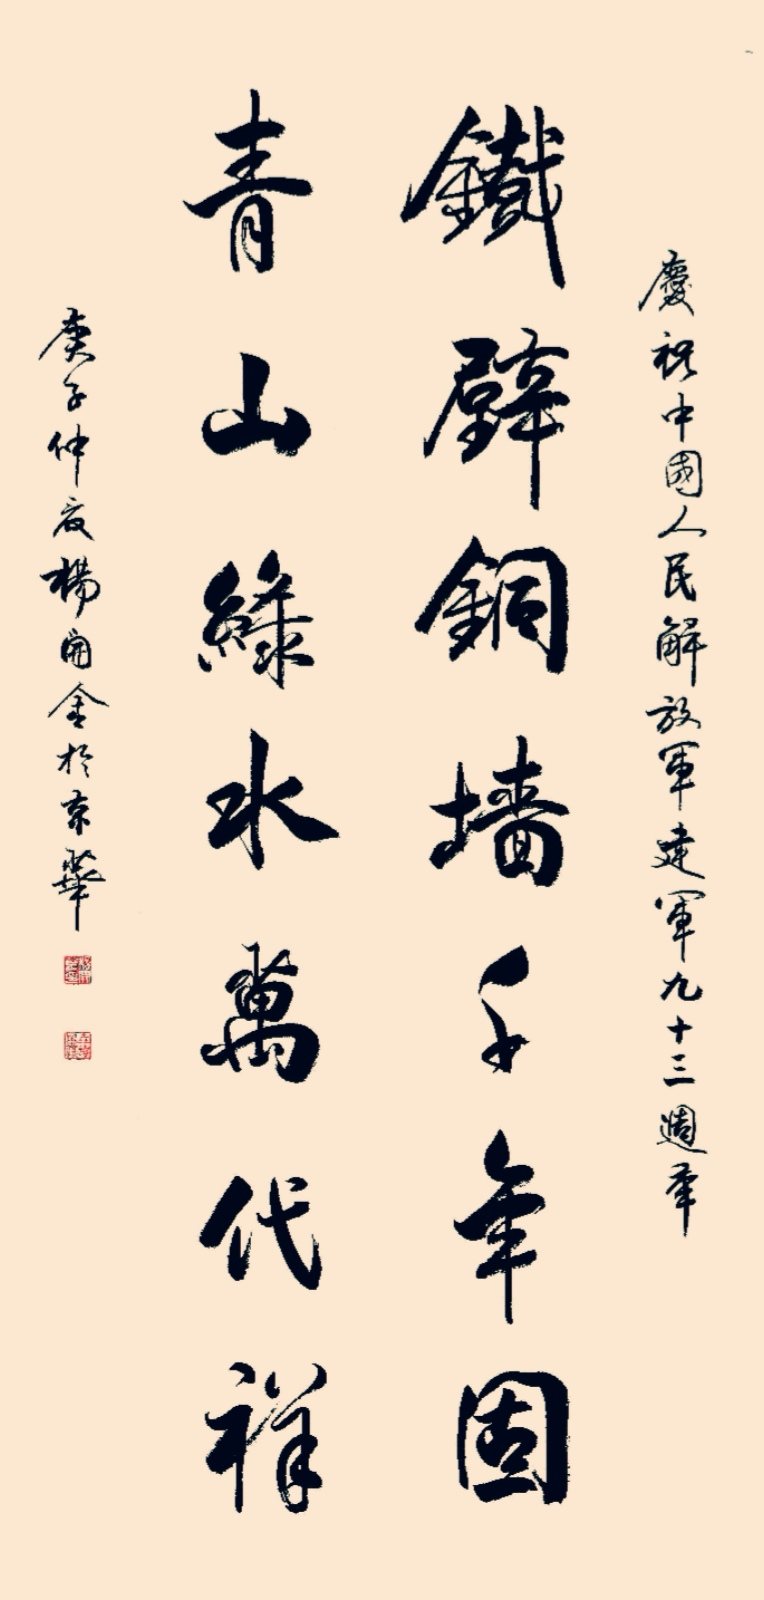 慶祝中國人民解放軍建軍九十三週年
鐵壁銅墻千年固
青山綠水萬代祥
庚子仲夏楊開金於京華